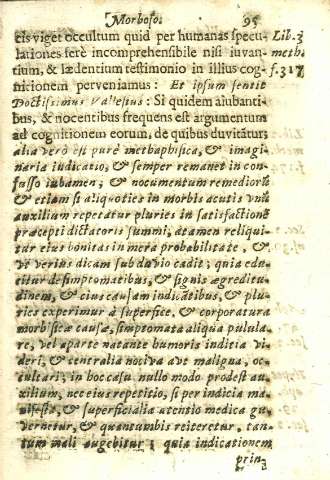 Morboso. 95
cis viget occultum quid per humanas specu- Lib. 3
lationes ferè incomprehensibile nisi iuvan- meth.
tium, & lædentium testimonio in illius cog- f. 317
nitionem perveniamus: Et ipsum sentit
Doctissimus Vallesius: Si quidem aiubanti-
bus, & nocentibus frequens est argumentum
ad cognitionem eorum, de quibus duvitatur;
alia verò est purè methaphisica, & imagi-
naria iudicatio, & semper remanet in con-
fusso iubamen; & nocumentum remediorũ
& etiam si aliquoties in morbis acutis vnũ
auxilium repetatur pluries in satisfactionẽ
præcepti dictatoris summi, atamen reliqui-
tur eius bonitas in mera probabilitate, &
vt verius dicam sub duvio cadit; quia edu-
citur de simptomatibus, & signis ægreditu-
dinem, & eius causam indicãtibus, & plu-
ries experimur à superfice, & corporatura
morbificæ causæ, simptomata aliqua pulula-
re, vel aparte natante humoris inditia vi-
deri, & centralia nociva aut maligna, oc-
cultari; in hoc casu nullo modo prodest au-
xilium, nec eius repetitio, si per indicia ma-
nifesta, & superficialia atentio medica gu-
vernetur, & quantumbis reiteretur, tan-
tum mali augebitur; quia indicationem
prin-